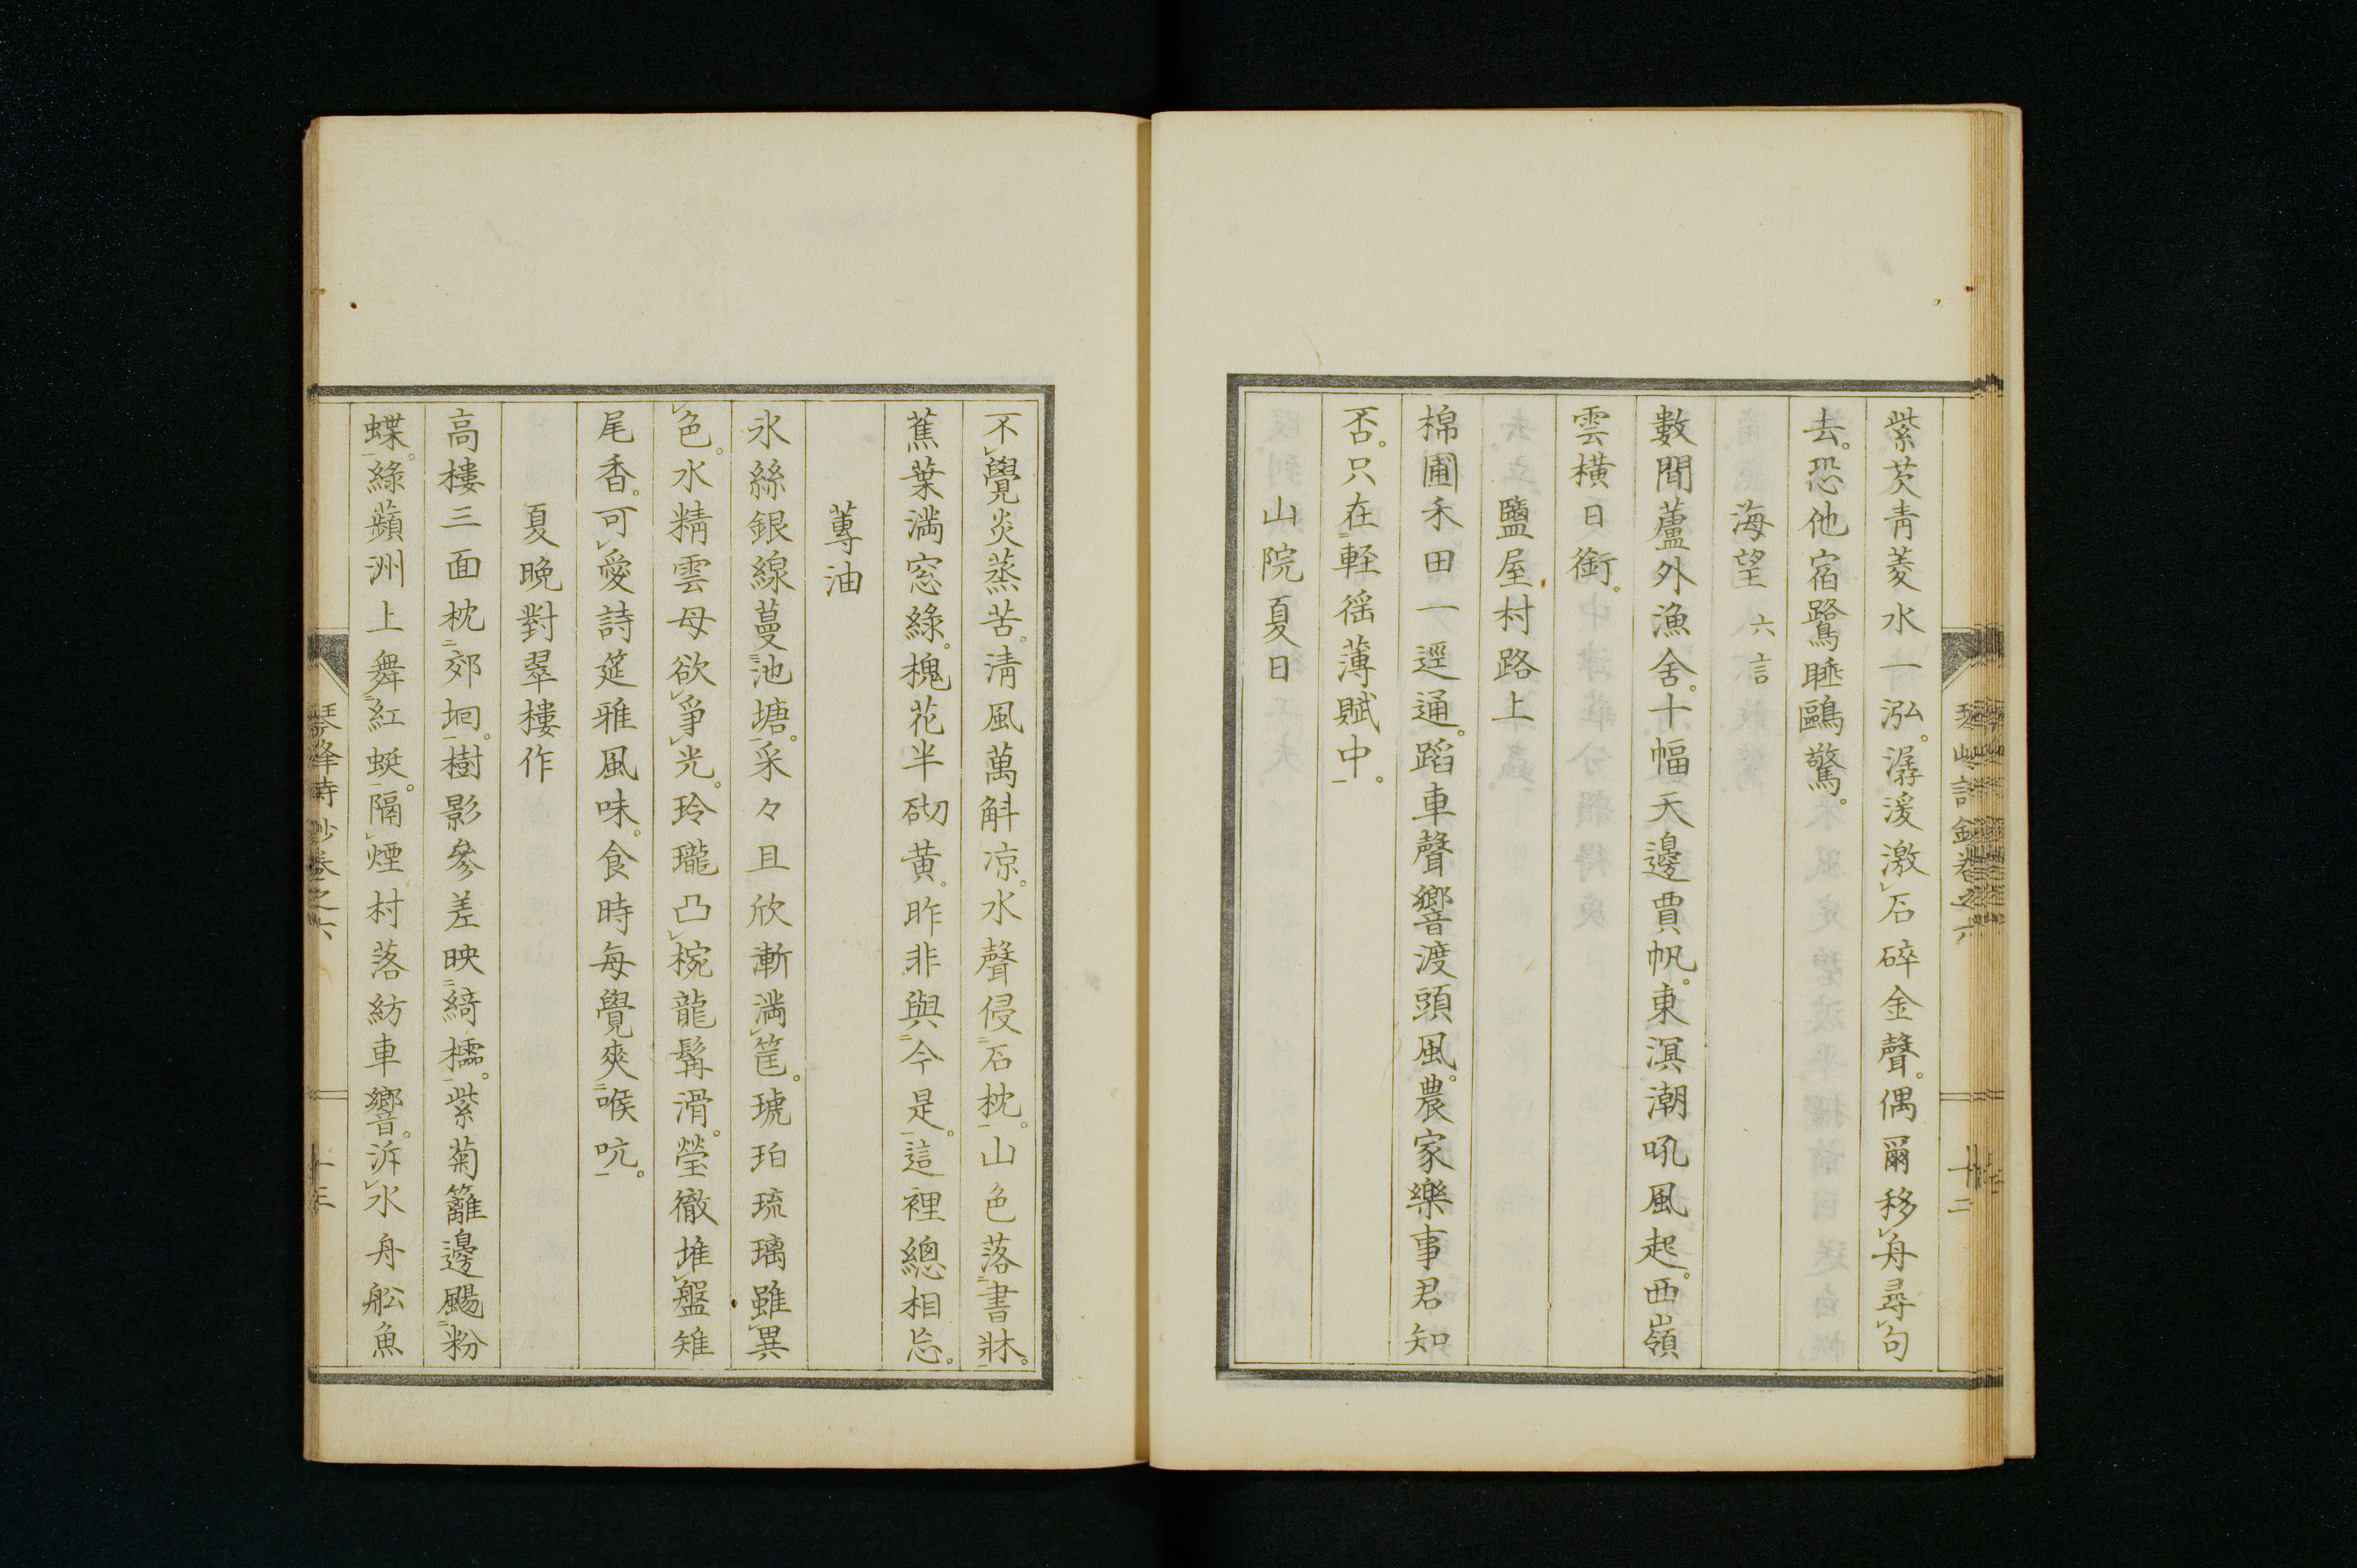 紫芡青菱水一泓。潺湲激石碎金聲。偶爾移舟尋句
去。恐他宿鷺睡鷗驚。
海望 六言
數間蘆外漁舍。十幅天邊賈帆。東溟潮吼風起。西嶺
雲橫日銜。
鹽屋村路上
棉圃禾田一逕通。蹈車聲響渡頭風。農家樂事君知
否。只在軽徭薄賦中。
山院夏日
不覺炎蒸苦。清風萬斛凉。水聲侵石枕。山色落書牀。
蕉葉満窓綠。槐花半砌黄。昨非與今是。這裡總相忘。
蓴油
氷絲銀線蔓池塘。采々且欣漸満筐。琥珀琉璃雖異
色。水精雲母欲爭光。玲瓏凸椀龍髯滑。瑩徹堆盤雉
尾香。可愛詩筵雅風味。食時每覺爽喉吭。
夏晩對翠樓作
高樓三面枕郊坰。樹影參差映綺櫺。紫菊籬邊颺粉
蝶。綠蘋洲上舞紅蜓。隔煙村落紡車響。泝水舟舩魚
琴峰詩鈔卷之六 十三